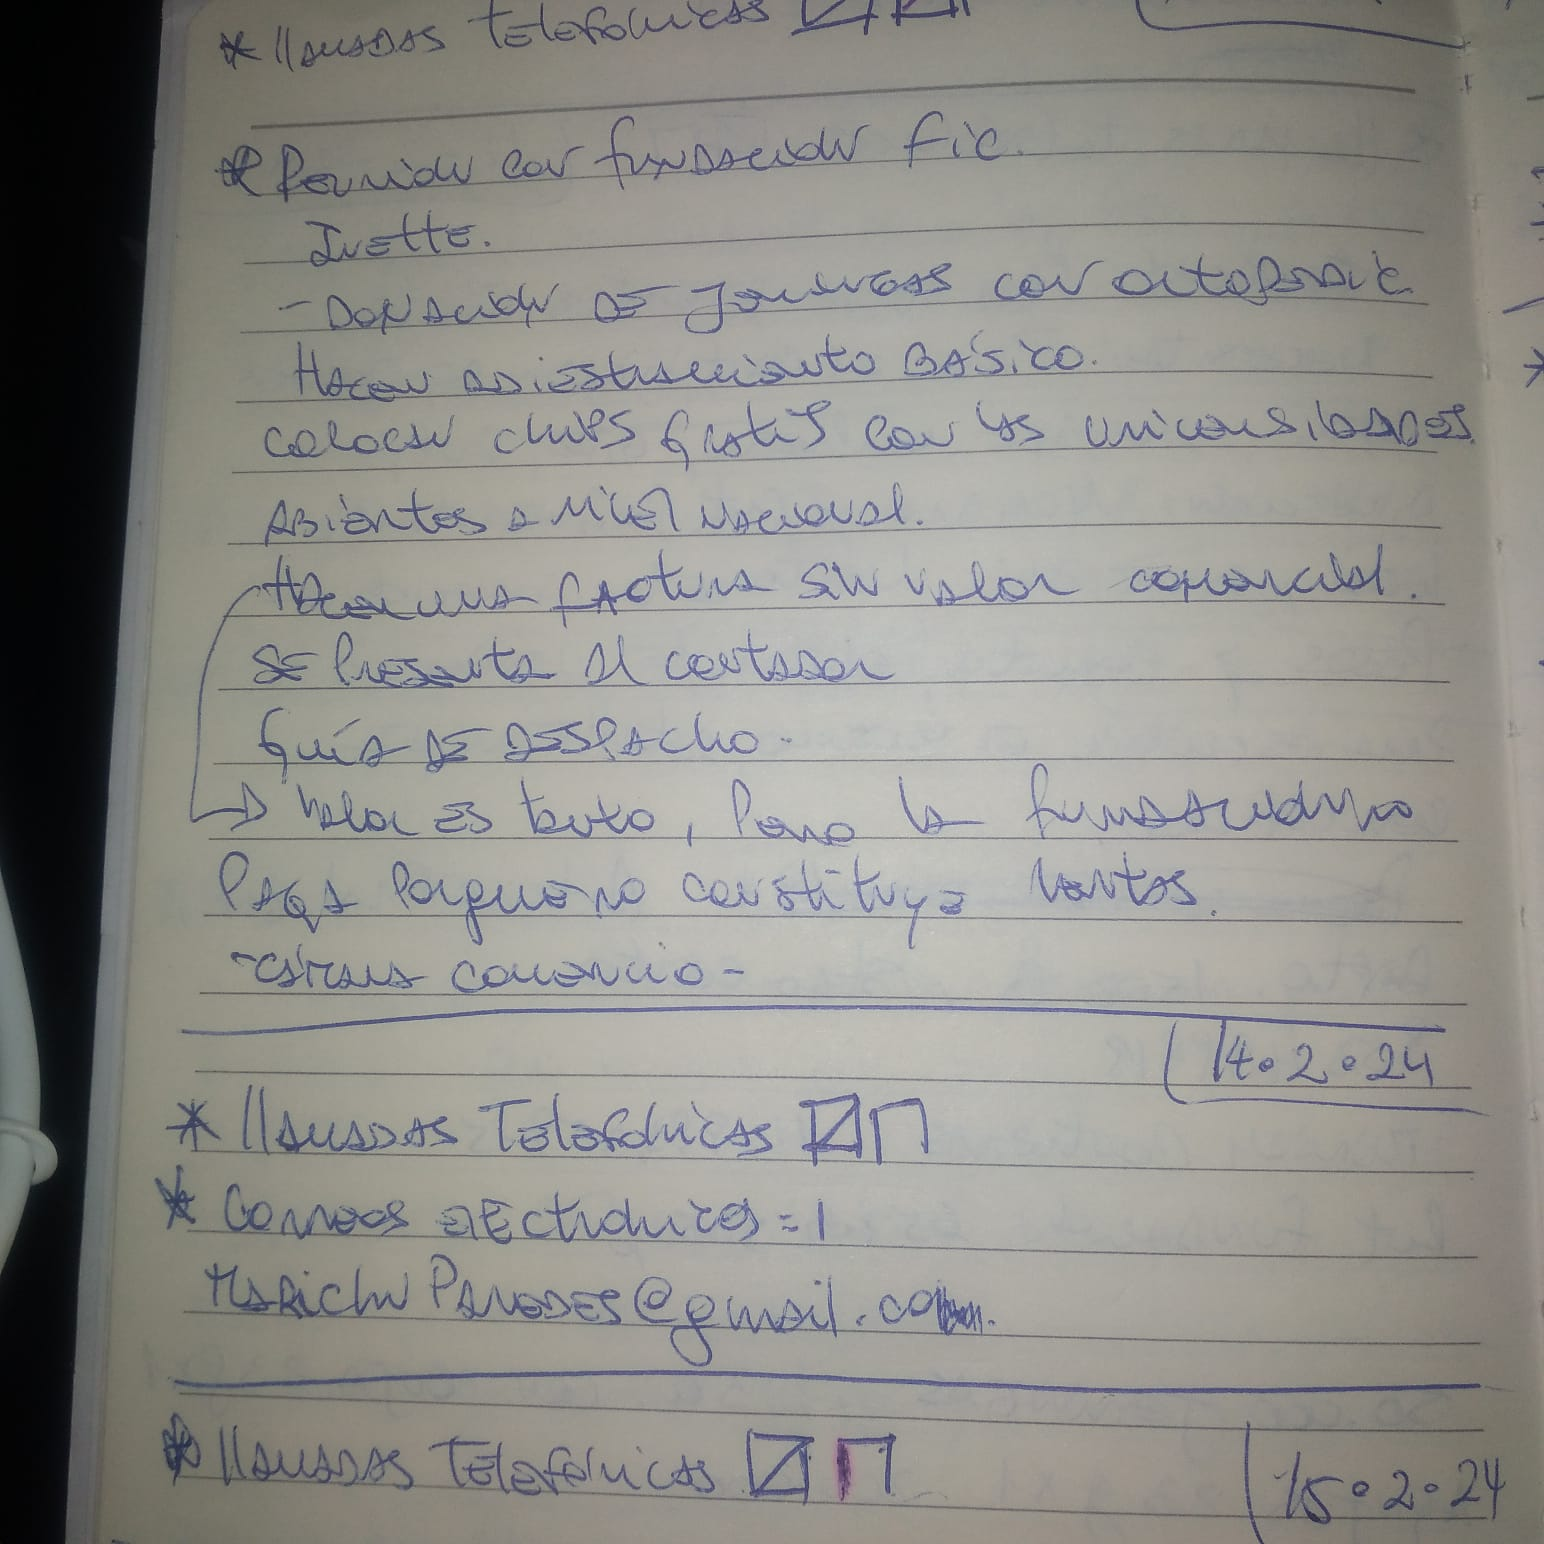 * llamadas telefónicas
* Reunión con fundación fic.
Ivette.
- Donación de jouveas con
Hacen adiestramiento BÁSICO.
colocar chips gratis con las
Abiertos a nivel nacional.
Hacer una factura sin valor comercial.
se presenta al contador
Guía de despacho.
→ Valor es tanto, pero la fundación no
paga porque no constituye ventas.
- cámara comercio -
14.2.24
* llamadas telefónicas
* Correos electrónicos = 1
Marichu Paredes@gmail.com.
* llamadas telefónicas
15.2.24